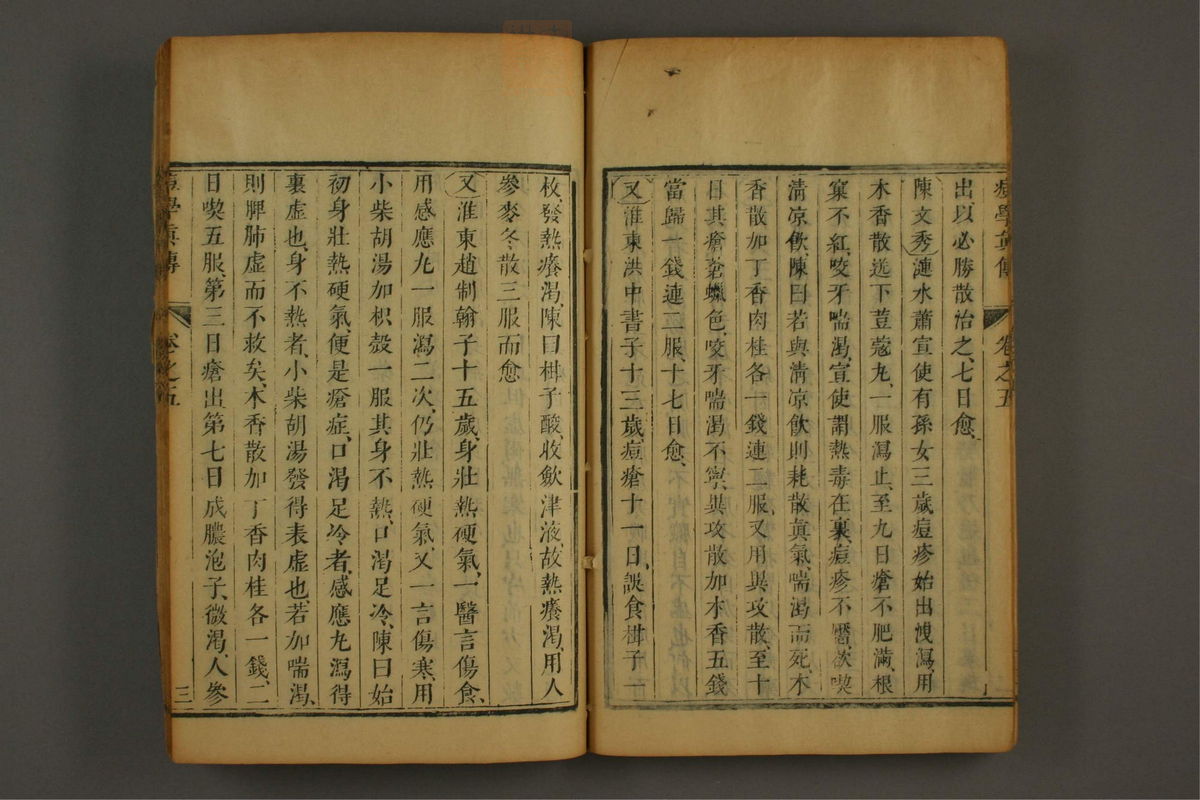 痘學真傳 卷之五
出,以必勝散治之,七日愈,
陳文秀漣水蕭宣使有孫女三歲痘疹始出洩瀉,用
木香散送下荳蔻丸,一服瀉止,至九日瘡不肥滿,根
窠不紅,咬牙喘渴,宣使謂熱毒在裏,痘疹不靨,欲喫
清凉飲,陳曰若與清凉飲則耗散真氣,喘渴而死,木
香散加丁香肉桂各一錢連二服,又用異攻散,至十
日其瘡蒼蠟色,咬牙喘渴不寧,異攻散加木香五錢
當歸一錢連二服,十七日愈,
又淮東洪中書子十三歲,痘瘡十一日,誤食柑子一
枚,發熱癢渴,陳曰柑子酸,收歛津液,故熱癢渴,用人
參麥冬散三服而愈
又淮東趙制翰子十五歲,身壯熱硬氣,一醫言傷食,
用感應丸一服瀉二次,仍壯熱硬氣,又一言傷寒,用
小柴胡湯加枳殼一服其身不熱,口渴足冷,陳曰始
初身壯熱硬氣,便是瘡症,口渴足冷者,感應丸瀉得
裏虛也,身不熱者,小柴胡湯發得表虛也,若加喘渴,
則脾肺虛而不救矣,木香散加丁香肉桂各一錢,二
日喫五服,第三日瘡出第七日成膿泡子,微渴,人參
痘學真傳 卷之五 三